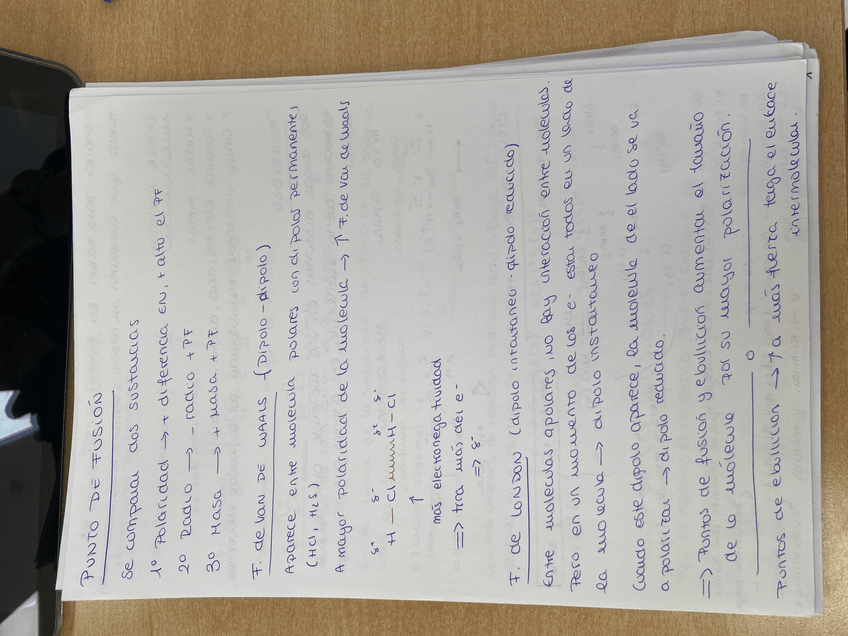 PUNTO DE FUSIÓN
Se comparar dos sustancias
1º Polaridad → + diferencia EN, + alto el PF
2º Radio → - radio + PF
3º Masa → + Masa + PF
F. de VAN DE WAALS - (Dipolo - dipolo)
Aparece entre molécula polares con dipolos permanentes
(HCl, H₂S)
A mayor polaridad de la molécula → ↑ F. de Van de Waals
δ⁺ δ⁻ δ⁺ δ⁻
H - Cl H - Cl
↑
más electronegatividad
=> tira más del e-
=> δ-
F. de LONDON (dipolo intantaneo - dipolo reducido)
Entre moléculas apolares, no hay interación entre moléculas.
Pero en un momento de los e- estan todos en un lado de
la molécula → dipolo instantaneo
Cuando este dipolo aparece, la molécula de el lado se va
a polarizar → dipolo reducido.
=> Puntos de fusión y ebullición aumentan el tamaño
de la molécula por su mayor polarización.
o
Puntos de ebullición → ↑ a más fuerza tenga el enlace
intermolecular.
1